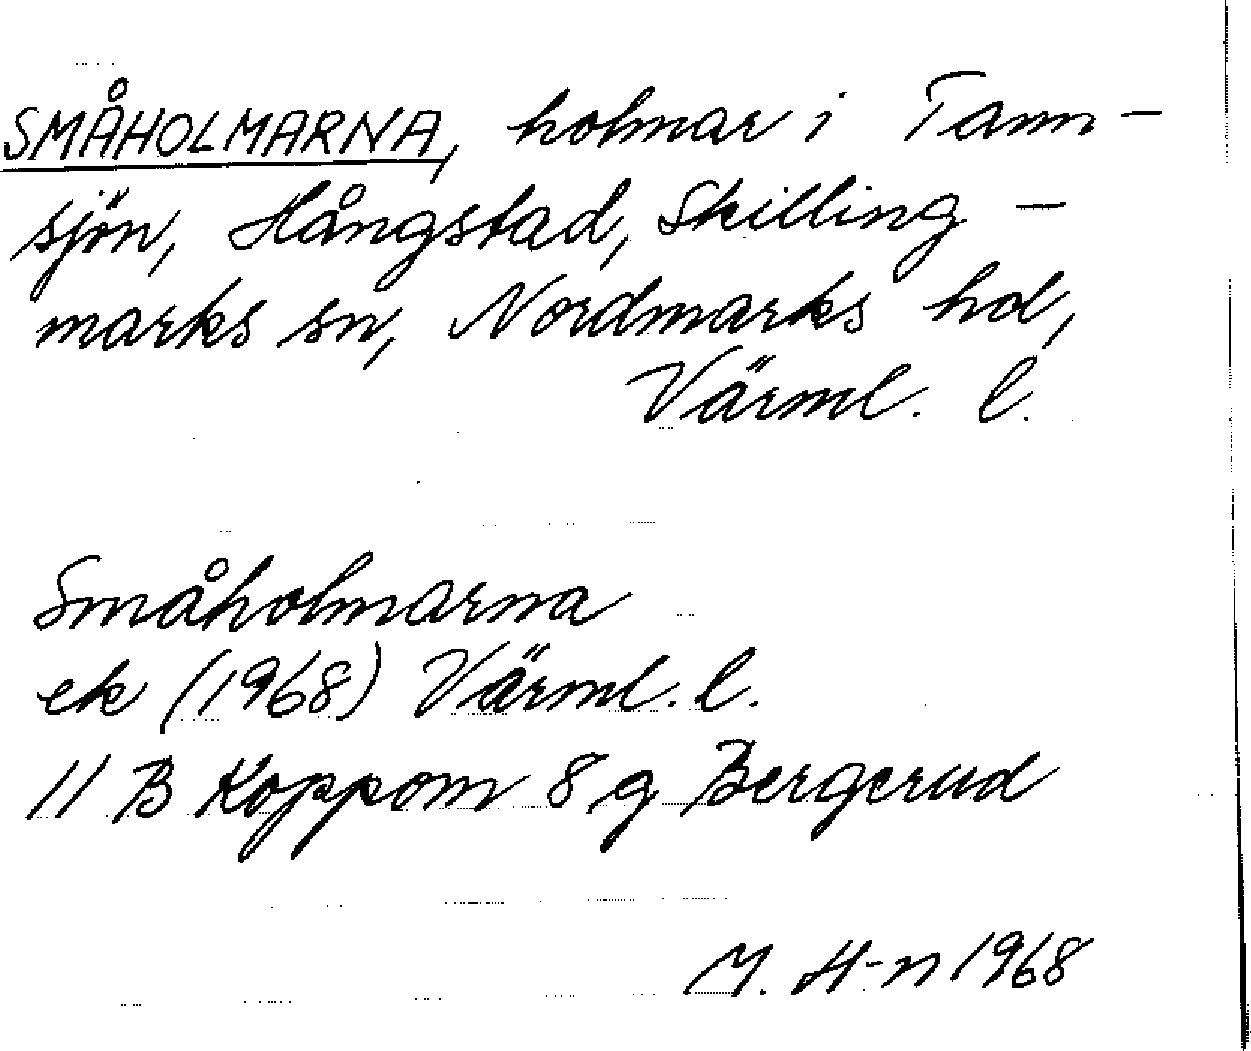 SMÅHOLMARNA, holmar i Tann-
sjön, Hångstad, Skilling-
marks sn, Nordmarks hd,
Värml. l.
Småholmarna
ek (1968) Värml. l.
11 B Koppom 8 g Bergerud
M. H-n 1968